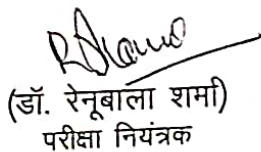 (डॉ. रेनूबाला शर्मा)
परीक्षा नियंत्रक